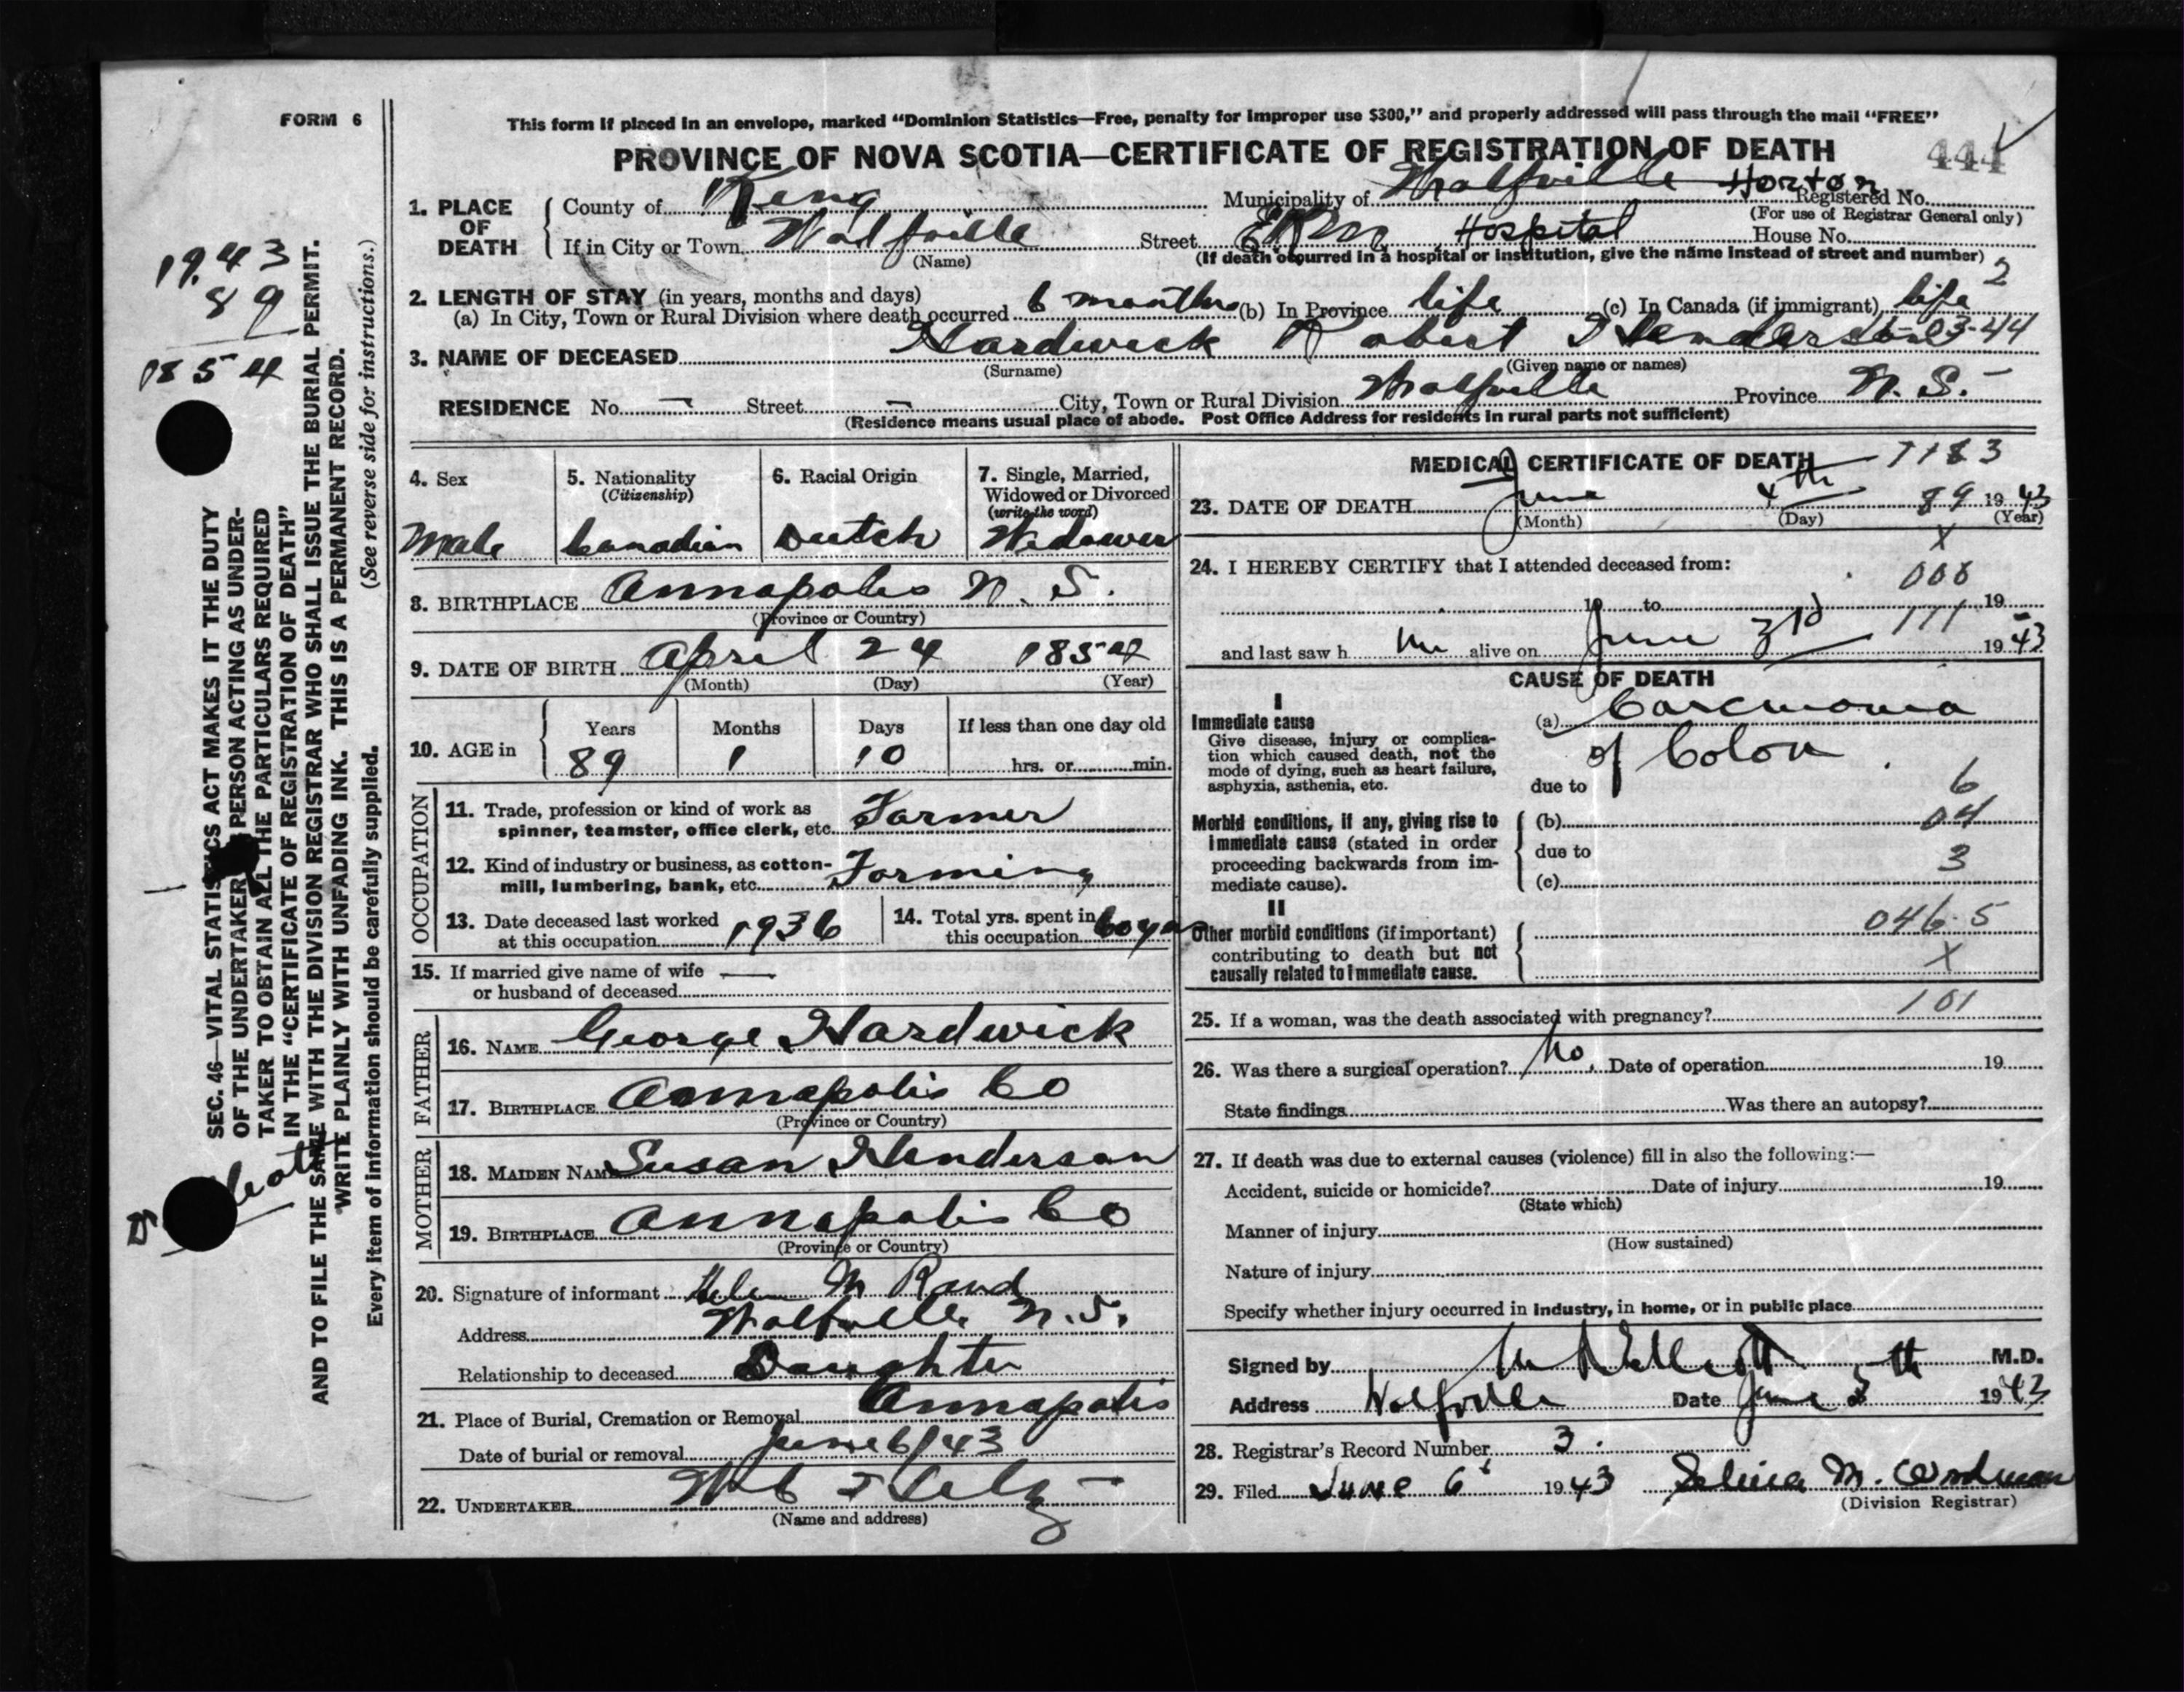 FORM 6
This form if placed in an envelope, marked "Dominion Statistics—Free, penalty for improper use $300," and properly addressed will pass through the mail "FREE"
PROVINCE OF NOVA SCOTIA—CERTIFICATE OF REGISTRATION OF DEATH 444
1. PLACE OF DEATH County of Kings Municipality of Wolfville Horton Registered No.
(For use of Registrar General only)
If in City or Town Wolfville Street E K M Hospital House No.
(Name) (If death occurred in a hospital or institution, give the name instead of street and number) 2
2. LENGTH OF STAY (in years, months and days)
(a) In City, Town or Rural Division where death occurred 6 months (b) In Province life (c) In Canada (if immigrant) life
3. NAME OF DECEASED Hardwick Robert Henderson 03-44
(Surname) (Given name or names)
RESIDENCE No. — Street — City, Town or Rural Division Wolfville Province N. S.
(Residence means usual place of abode. Post Office Address for residents in rural parts not sufficient)
1943
89
1854
SEC. 46—VITAL STATISTICS ACT MAKES IT THE DUTY
OF THE UNDERTAKER PERSON ACTING AS UNDER-
TAKER TO OBTAIN ALL THE PARTICULARS REQUIRED
IN THE "CERTIFICATE OF REGISTRATION OF DEATH"
AND TO FILE THE SAME WITH THE DIVISION REGISTRAR WHO SHALL ISSUE THE BURIAL PERMIT.
WRITE PLAINLY WITH UNFADING INK. THIS IS A PERMANENT RECORD.
Every item of information should be carefully supplied. (See reverse side for instructions.)
4. Sex 5. Nationality 6. Racial Origin 7. Single, Married,
(Citizenship) Widowed or Divorced
(write the word)
Male Canadian Dutch Widower
8. BIRTHPLACE Annapolis N. S.
(Province or Country)
9. DATE OF BIRTH April 24 1854
(Month) (Day) (Year)
10. AGE in Years Months Days If less than one day old
89 1 10 hrs. or min.
OCCUPATION
11. Trade, profession or kind of work as
spinner, teamster, office clerk, etc. Farmer
12. Kind of industry or business, as cotton-
mill, lumbering, bank, etc. Farming
13. Date deceased last worked
at this occupation 1936
14. Total yrs. spent in
this occupation 60 yrs
15. If married give name of wife —
or husband of deceased
FATHER
16. NAME George Hardwick
17. BIRTHPLACE Annapolis Co
(Province or Country)
MOTHER
18. MAIDEN NAME Susan Henderson
19. BIRTHPLACE Annapolis Co
(Province or Country)
20. Signature of informant Helen M Rand
Address Wolfville N.S.
Relationship to deceased Daughter
21. Place of Burial, Cremation or Removal Annapolis
Date of burial or removal June 6/43
22. UNDERTAKER
(Name and address)
MEDICAL CERTIFICATE OF DEATH 7183
23. DATE OF DEATH June 4th 89 1943
(Month) (Day) (Year)
X
24. I HEREBY CERTIFY that I attended deceased from: 006
19 to 19
and last saw h im alive on June 3rd 111 1943
CAUSE OF DEATH
I
Immediate cause
Give disease, injury or complica-
tion which caused death, not the
mode of dying, such as heart failure,
asphyxia, asthenia, etc.
(a) Carcinoma
of Colon
due to 6
Morbid conditions, if any, giving rise to
immediate cause (stated in order
proceeding backwards from im-
mediate cause).
(b) 04
due to 3
(c)
II
Other morbid conditions (if important)
contributing to death but not
causally related to immediate cause.
046.5
X
25. If a woman, was the death associated with pregnancy? 101
26. Was there a surgical operation? No. Date of operation 19
State findings Was there an autopsy?
27. If death was due to external causes (violence) fill in also the following:—
Accident, suicide or homicide? Date of injury 19
(State which)
Manner of injury
(How sustained)
Nature of injury
Specify whether injury occurred in industry, in home, or in public place
Signed by M.D.
Address Wolfville Date June 5th 1943
28. Registrar's Record Number 3.
29. Filed June 6 1943
(Division Registrar)